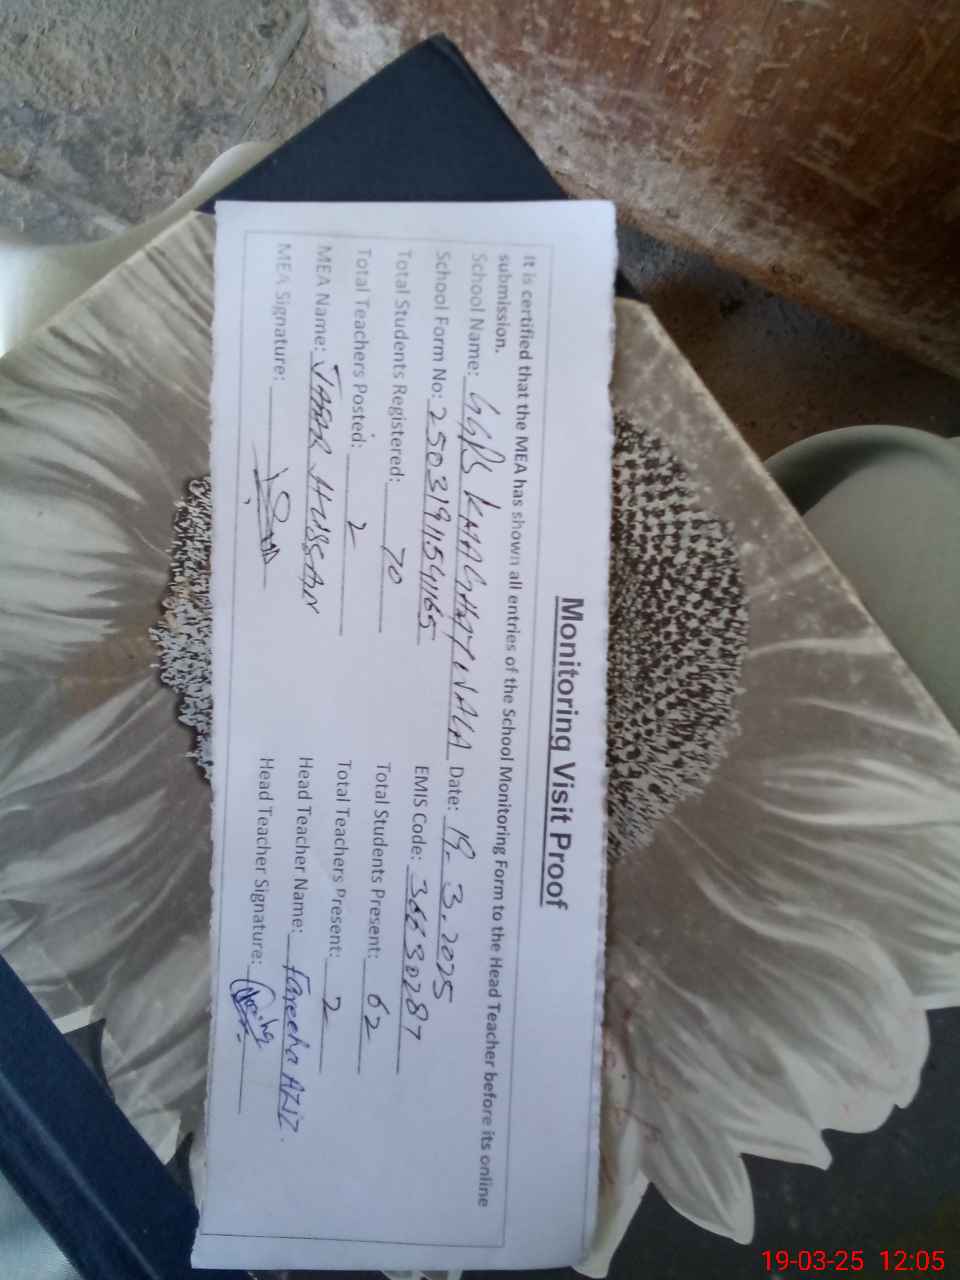 Monitoring Visit Proof
It is certified that the MEA has shown all entries of the School Monitoring Form to the Head Teacher before its online
submission.
School Name: GGPS KHAGHATIWALA Date: 19.3.2025
School Form No: 250319115941165 EMIS Code: 36630287
Total Students Registered: 70 Total Students Present: 62
Total Teachers Posted: 2 Total Teachers Present: 2
MEA Name: JAFAR HUSSAIN Head Teacher Name: Fareeha AZIZ.
MEA Signature: Head Teacher Signature:
19-03-25 12:05